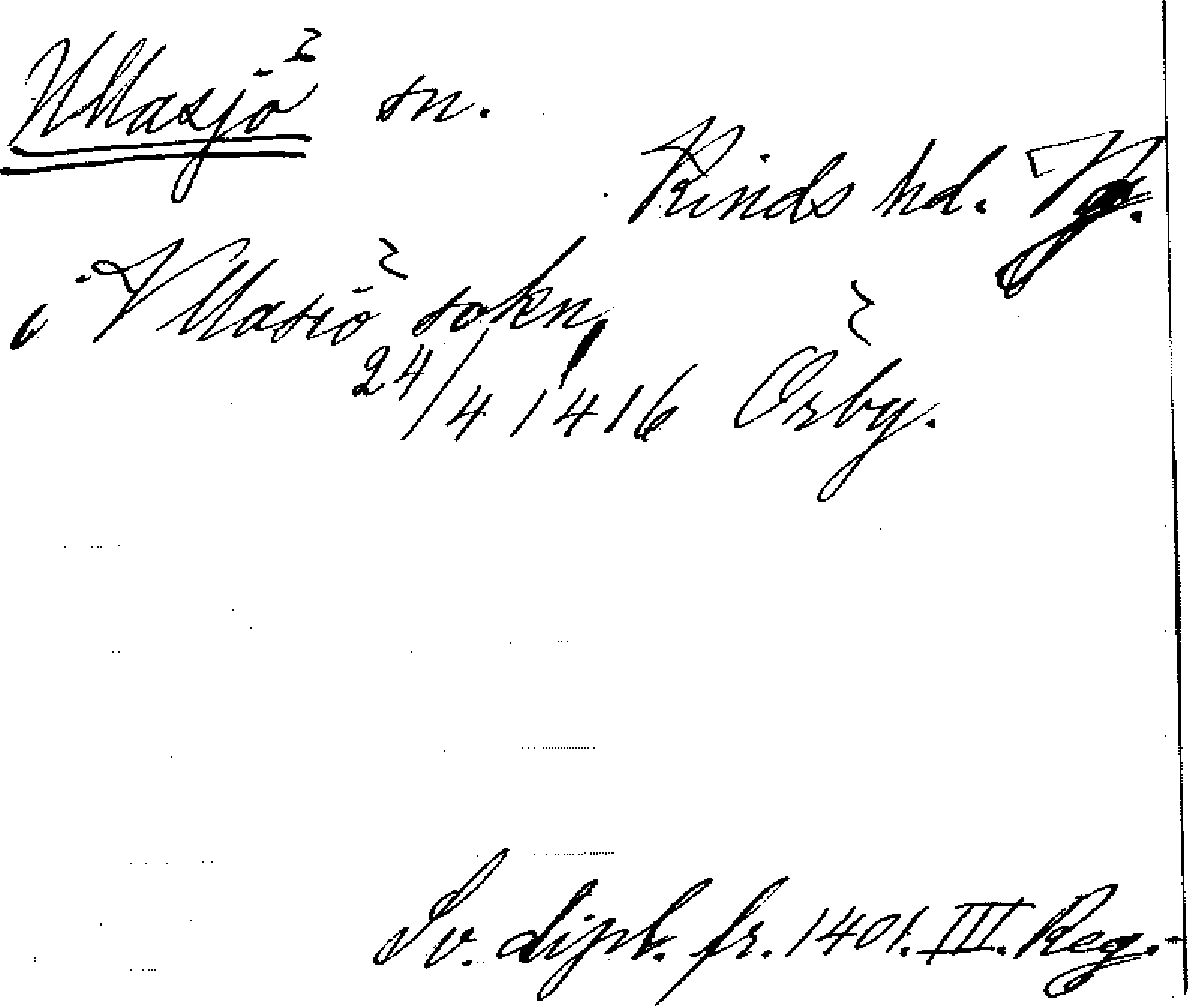 Ullasjö sn.
Kinds hd. Vg.
i Vllasiö sokn,
24/4 1416 Örby.
Sv. dipl. fr. 1401. III. Reg.